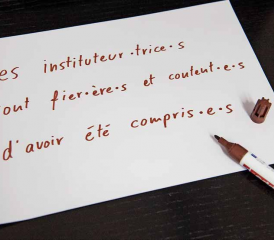 es instituteur·trice·s
ont fier·ère·s et content·e·s
d'avoir été compris·e·s